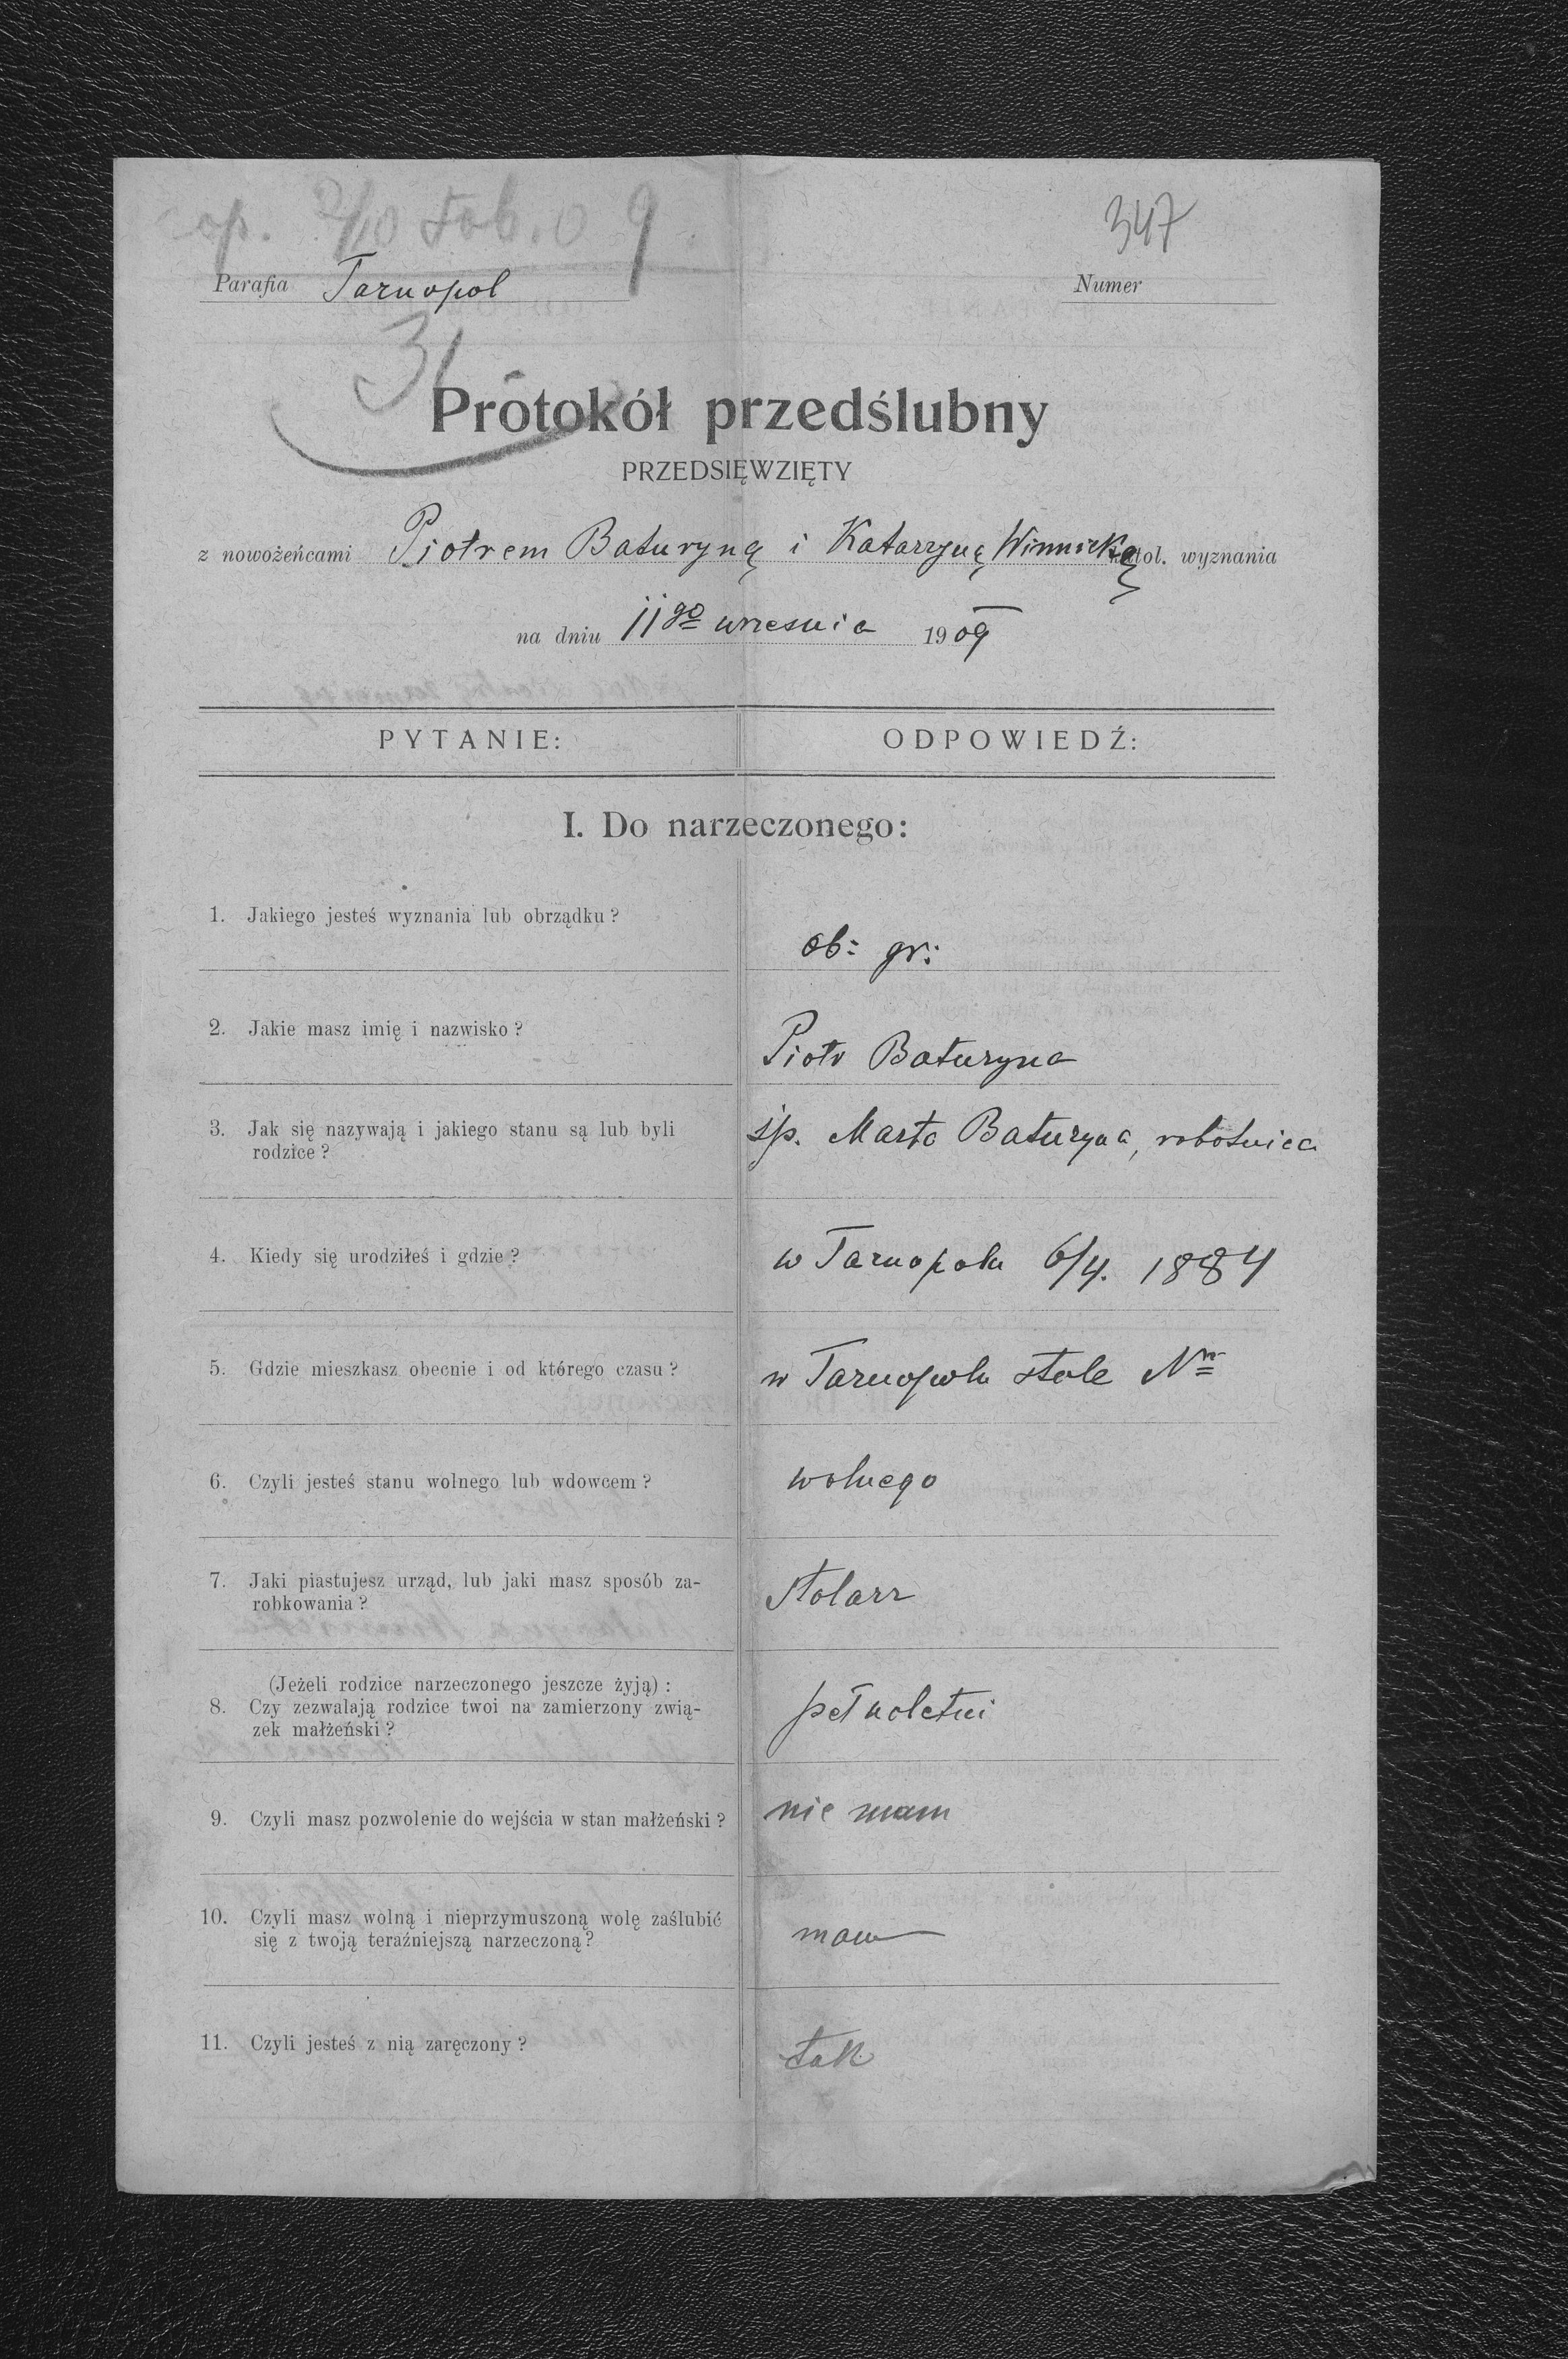 op. 2/10 Fob. 09
347
Parafia Tarnopol
Numer
31
Protokół przedślubny
PRZEDSIĘWZIĘTY
z nowożeńcami Piotrem Baturyną i Katarzyną Winnicką katol. wyznania
na dniu 11go wrzesnia 1909
PYTANIE:
ODPOWIEDŹ:
I. Do narzeczonego:
1. Jakiego jesteś wyznania lub obrządku?
ob: gr:
2. Jakie masz imię i nazwisko?
Piotr Baturyna
3. Jak się nazywają i jakiego stanu są lub byli
rodzice?
śp. Marta Baturyna, robotnica
4. Kiedy się urodziłeś i gdzie?
w Tarnopolu 6/4. 1884
5. Gdzie mieszkasz obecnie i od którego czasu?
w Tarnopolu stale Nr
6. Czyli jesteś stanu wolnego lub wdowcem?
wolnego
7. Jaki piastujesz urząd, lub jaki masz sposób za-
robkowania?
stolarz
(Jeżeli rodzice narzeczonego jeszcze żyją):
8. Czy zezwalają rodzice twoi na zamierzony zwią-
zek małżeński?
pełnoletni
9. Czyli masz pozwolenie do wejścia w stan małżeński?
nie mam
10. Czyli masz wolną i nieprzymuszoną wolę zaślubić
się z twoją teraźniejszą narzeczoną?
mam
11. Czyli jesteś z nią zaręczony?
tak